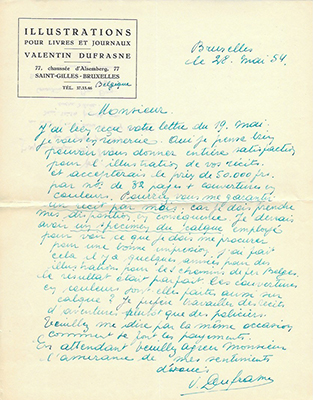 ILLUSTRATIONS
POUR LIVRES ET JOURNAUX
VALENTIN DUFRASNE
77, chaussée d'Alsemberg, 77
SAINT-GILLES - BRUXELLES
TÉL. 37.15.66
Belgique
Bruxelles
le 28. Mai 54.
Monsieur
J'ai bien reçu votre lettre du 19. mai.
je vous en remercie. Oui je pense bien
pouvoir vous donner entière satisfaction
pour l'illustration de vos récits.
et accepterais le prix de 50.000 frs.
par no. de 32 pages + couvertures en
couleurs. Pourriez vous me garantir
un récit par mois. car je dois prendre
mes dispositions en conséquence. Je désirais
avoir un spécimen du calque employé
pour voir ce que je dois me procurer
pour une bonne impression. J'ai fait
cela il y a quelques années pour des
illustrations pour les chemins de fer Belges
le résultat était parfait. Les couvertures
en couleurs sont-elles faites aussi sur
calque? Je préfère travailler des récits
d'aventures plutôt que des policiers.
Veuillez me dire par la même occasion
comment se font les payements.
En attendant veuillez agréer Monsieur
l'assurance de mes sentiments
dévoués
V. Dufrasne